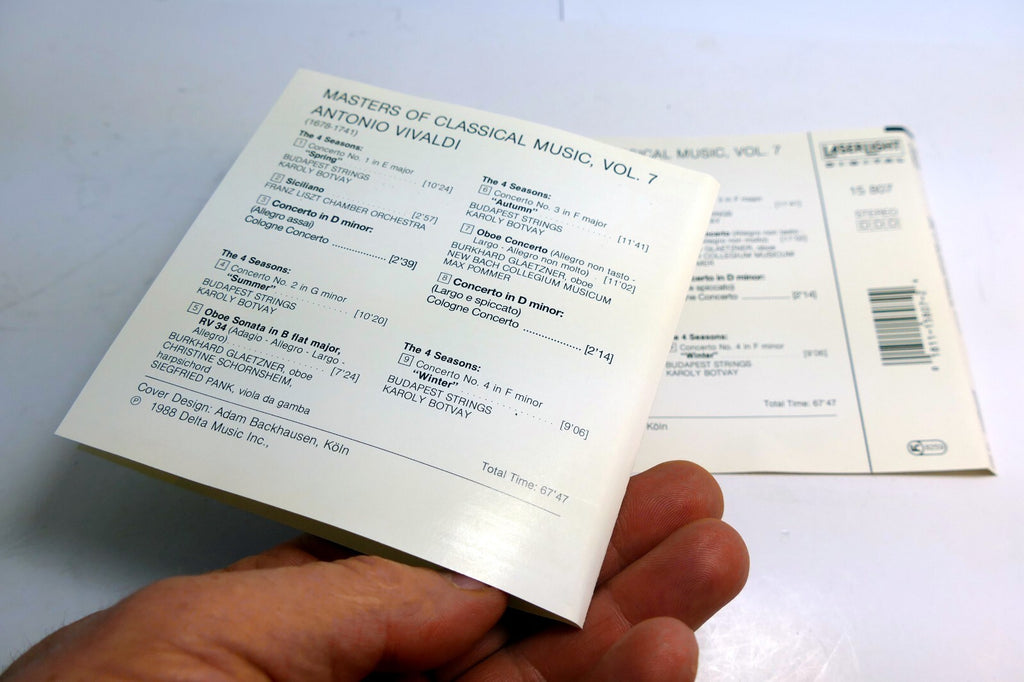 MASTERS OF CLASSICAL MUSIC, VOL. 7
ANTONIO VIVALDI
(1678-1741)
The 4 Seasons:
1 Concerto No. 1 in E major
"Spring" [10'24]
BUDAPEST STRINGS
KAROLY BOTVAY
2 Siciliano [2'57]
FRANZ LISZT CHAMBER ORCHESTRA
3 Concerto in D minor:
(Allegro assai)
Cologne Concerto [2'39]
The 4 Seasons:
4 Concerto No. 2 in G minor
"Summer" [10'20]
BUDAPEST STRINGS
KAROLY BOTVAY
5 Oboe Sonata in B flat major,
RV 34 (Adagio - Allegro - Largo -
Allegro) [7'24]
BURKHARD GLAETZNER, oboe
CHRISTINE SCHORNSHEIM,
harpsichord
SIEGFRIED PANK, viola da gamba
The 4 Seasons:
6 Concerto No. 3 in F major
"Autumn" [11'41]
BUDAPEST STRINGS
KAROLY BOTVAY
7 Oboe Concerto (Allegro non tasto -
Largo - Allegro non molto) [11'02]
BURKHARD GLAETZNER, oboe
NEW BACH COLLEGIUM MUSICUM
MAX POMMER
8 Concerto in D minor:
(Largo e spiccato)
Cologne Concerto [2'14]
The 4 Seasons:
9 Concerto No. 4 in F minor
"Winter" [9'06]
BUDAPEST STRINGS
KAROLY BOTVAY
Total Time: 67'47
Cover Design: Adam Backhausen, Köln
℗ 1988 Delta Music Inc.,
ICAL MUSIC, VOL. 7
COLLEGIUM MUSICUM
certo in D minor:
e spiccato)
ne Concerto [2'14]
4 Seasons:
Concerto No. 4 in F minor
"Winter" [9'06]
BUDAPEST STRINGS
KAROLY BOTVAY
Total Time: 67'47
Köln
LASERLIGHT
DIGITAL
15 807
STEREO
DDD